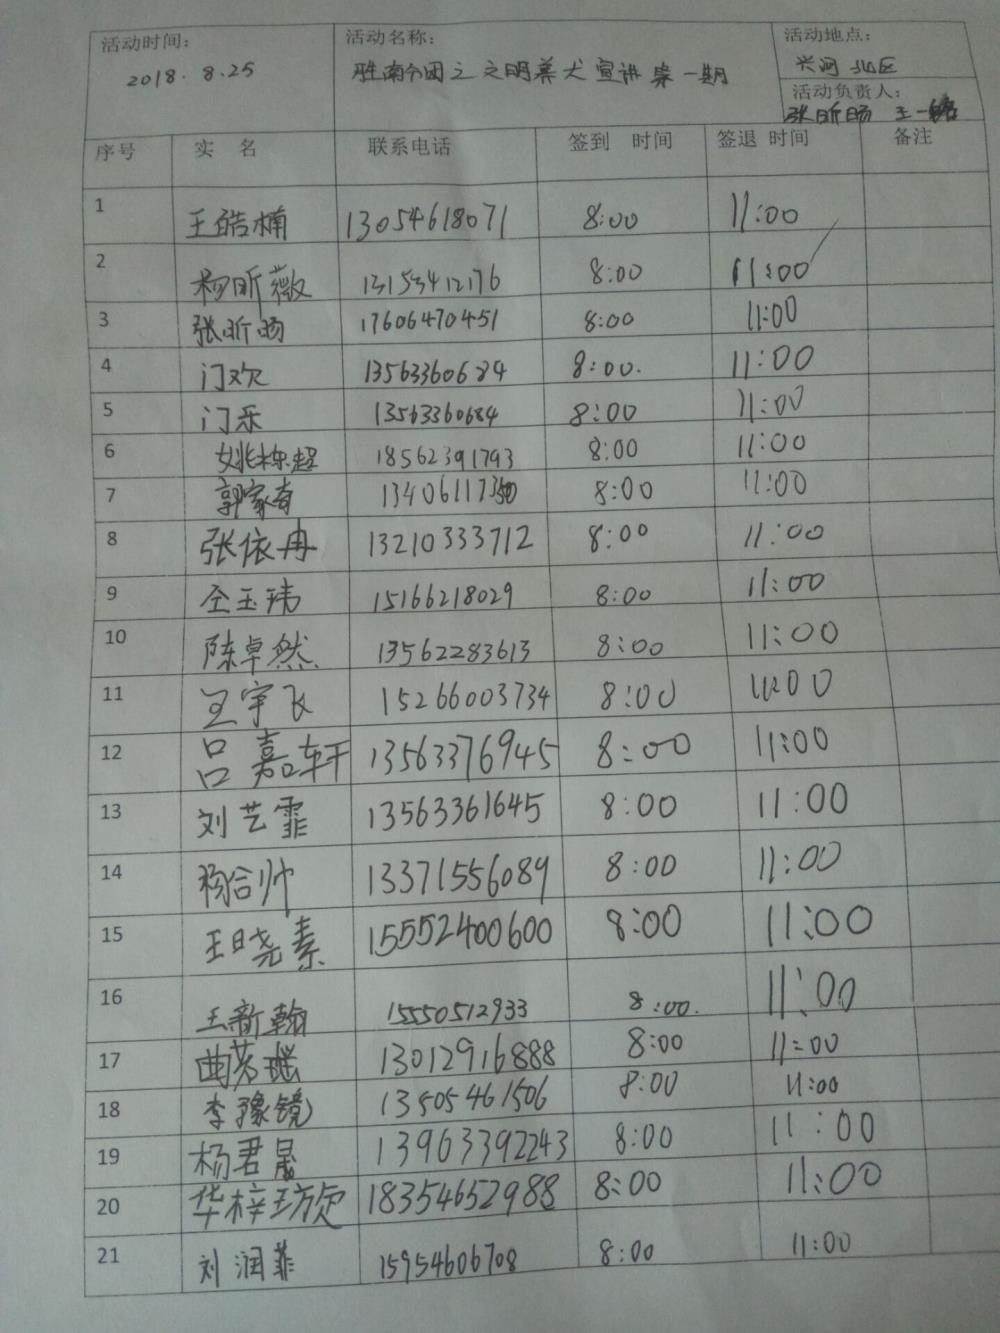 活动时间： 活动名称： 活动地点：
2018.8.25 胜南分团之文明养犬宣讲第一期 兴河北区
活动负责人：
张昕旸 王一
序号 实 名 联系电话 签到 时间 签退 时间 备注
1 王皓楠 13054618071 8:00 11:00
2 杨昕薇 13153412176 8:00 11:00
3 张昕旸 17606470451 8:00 11:00
4 门欢 13563360684 8:00. 11:00
5 门乐 13563360684 8:00 11:00
6 姚栋超 18562391793 8:00 11:00
7 郭家奇 8:00 11:00
8 张依冉 13210333712 8:00 11:00
9 仝玉玮 15166218029 8:00 11:00
10 陈卓然 13562283613 8:00 11:00
11 王宇飞 15266003734 8:00 11:00
12 吕嘉轩 13563376945 8:00 11:00
13 刘艺霏 13563361645 8:00 11:00
14 杨合帅 13371556089 8:00 11:00
15 王晓素 15552400600 8:00 11:00
16 王新翰 15550512933 8:00. 11:00
17 曲茗瑶 13012916888 8:00 11:00
18 李豫镜 13505461506 8:00 11:00
19 杨君晟 13963392243 8:00 11:00
20 华梓 18354652988 8:00 11:00
21 刘润菲 15954606708 8:00 11:00